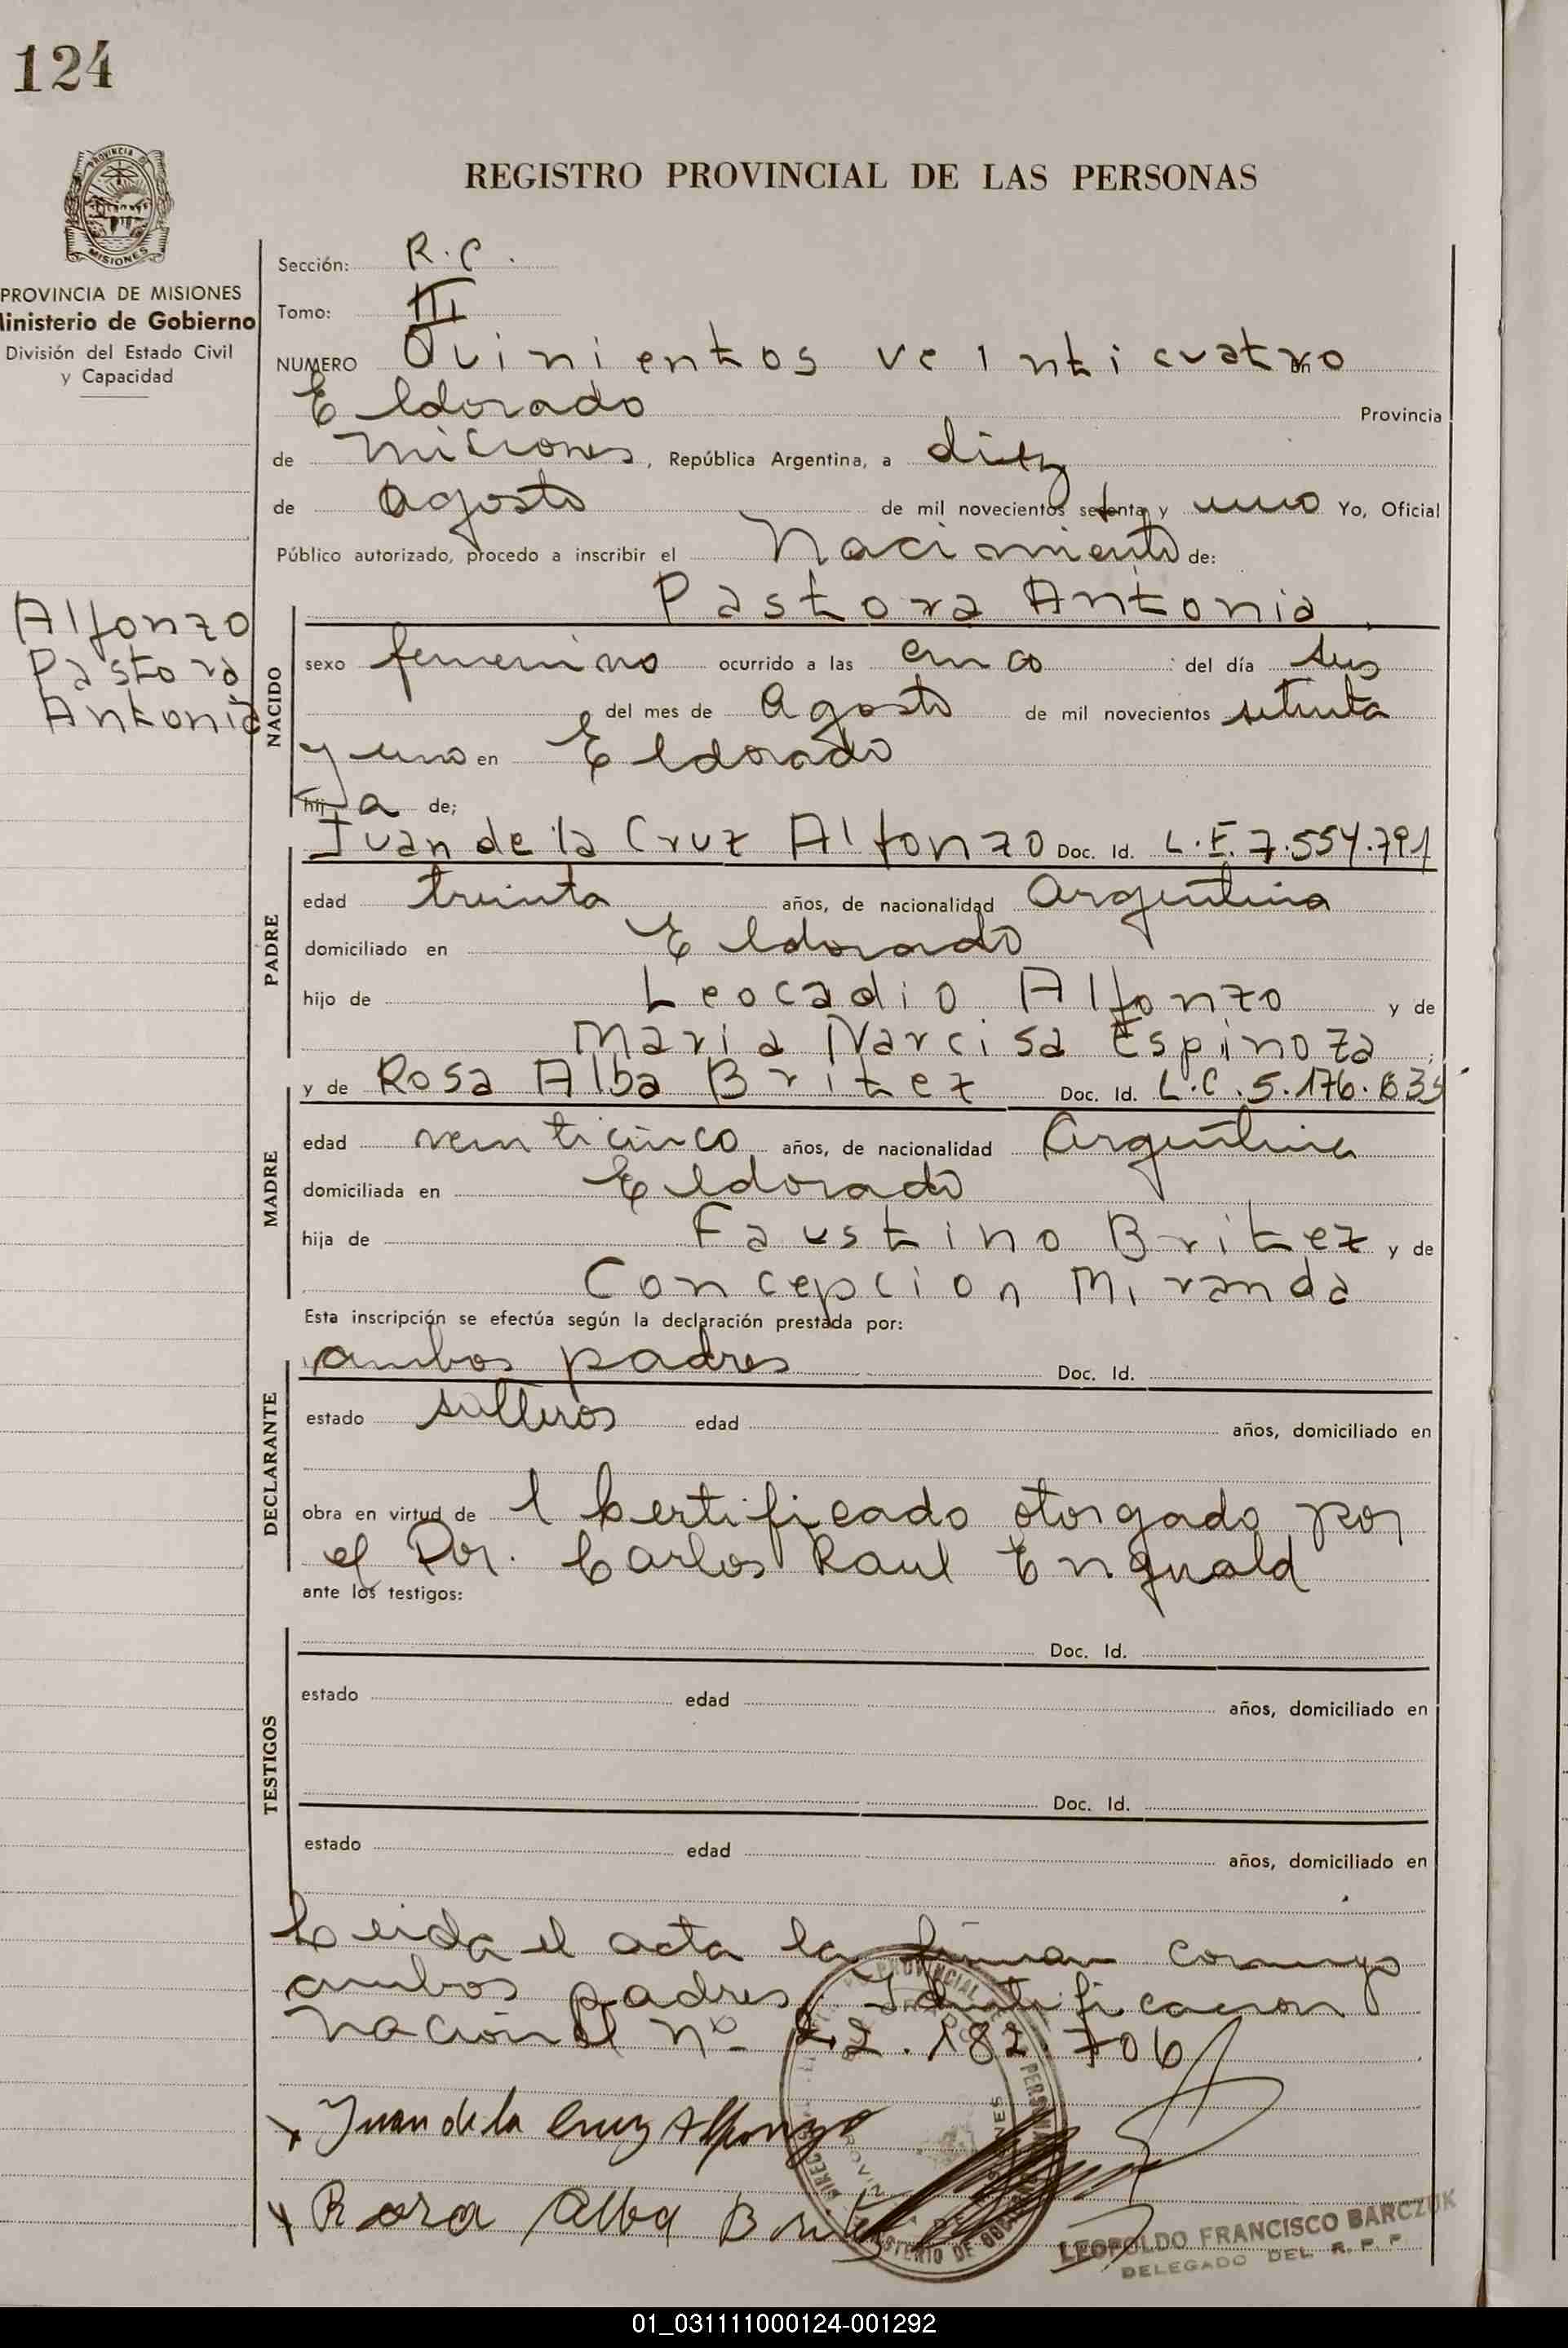 124
PROVINCIA DE
MISIONES
REGISTRO PROVINCIAL DE LAS PERSONAS
PROVINCIA DE MISIONES
Ministerio de Gobierno
División del Estado Civil
y Capacidad
Sección: R.C.
Tomo: III
NUMERO Quinientos veinticuatro en
Eldorado Provincia
de Miciones, República Argentina, a diez
de Agosto de mil novecientos setenta y uno Yo, Oficial
Público autorizado, procedo a inscribir el Nacimiento de:
Alfonzo
Pastora
Antonia
NACIDO
Pastora Antonia
sexo femenino ocurrido a las cinco del día seis
del mes de Agosto de mil novecientos setenta
y uno en Eldorado
hija de;
PADRE
Juan de la Cruz Alfonzo Doc. Id. L.E. 7.554.791
edad treinta años, de nacionalidad Argentina
domiciliado en Eldorado
hijo de Leocadio Alfonzo y de
Maria Narcisa Espinoza ;
MADRE
y de Rosa Alba Britez Doc. Id. L.C. 5.176.635
edad venticinco años, de nacionalidad Argentina
domiciliada en Eldorado
hija de Faustino Britez y de
Concepcion Miranda
Esta inscripción se efectúa según la declaración prestada por:
DECLARANTE
ambos padres Doc. Id.
estado solteros edad años, domiciliado en
obra en virtud de l Certificado otorgado por
el Dor. Carlos Raul Enguald
ante los testigos:
TESTIGOS
Doc. Id.
estado edad años, domiciliado en
Doc. Id.
estado edad años, domiciliado en
Leida el acta la firman conmigo
ambos padres, Identificacion
Nacional nº 22.182.706
Juan de la Cruz Alfonzo
Rosa Alba Britez
LEOPOLDO FRANCISCO BARCZUK
DELEGADO DEL R. P. P.
01_031111000124-001292